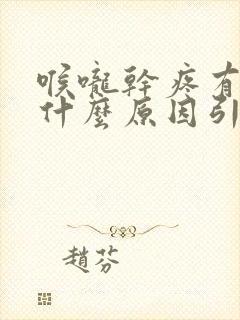 喉嚨幹疼有
什麼原因引
趙芬